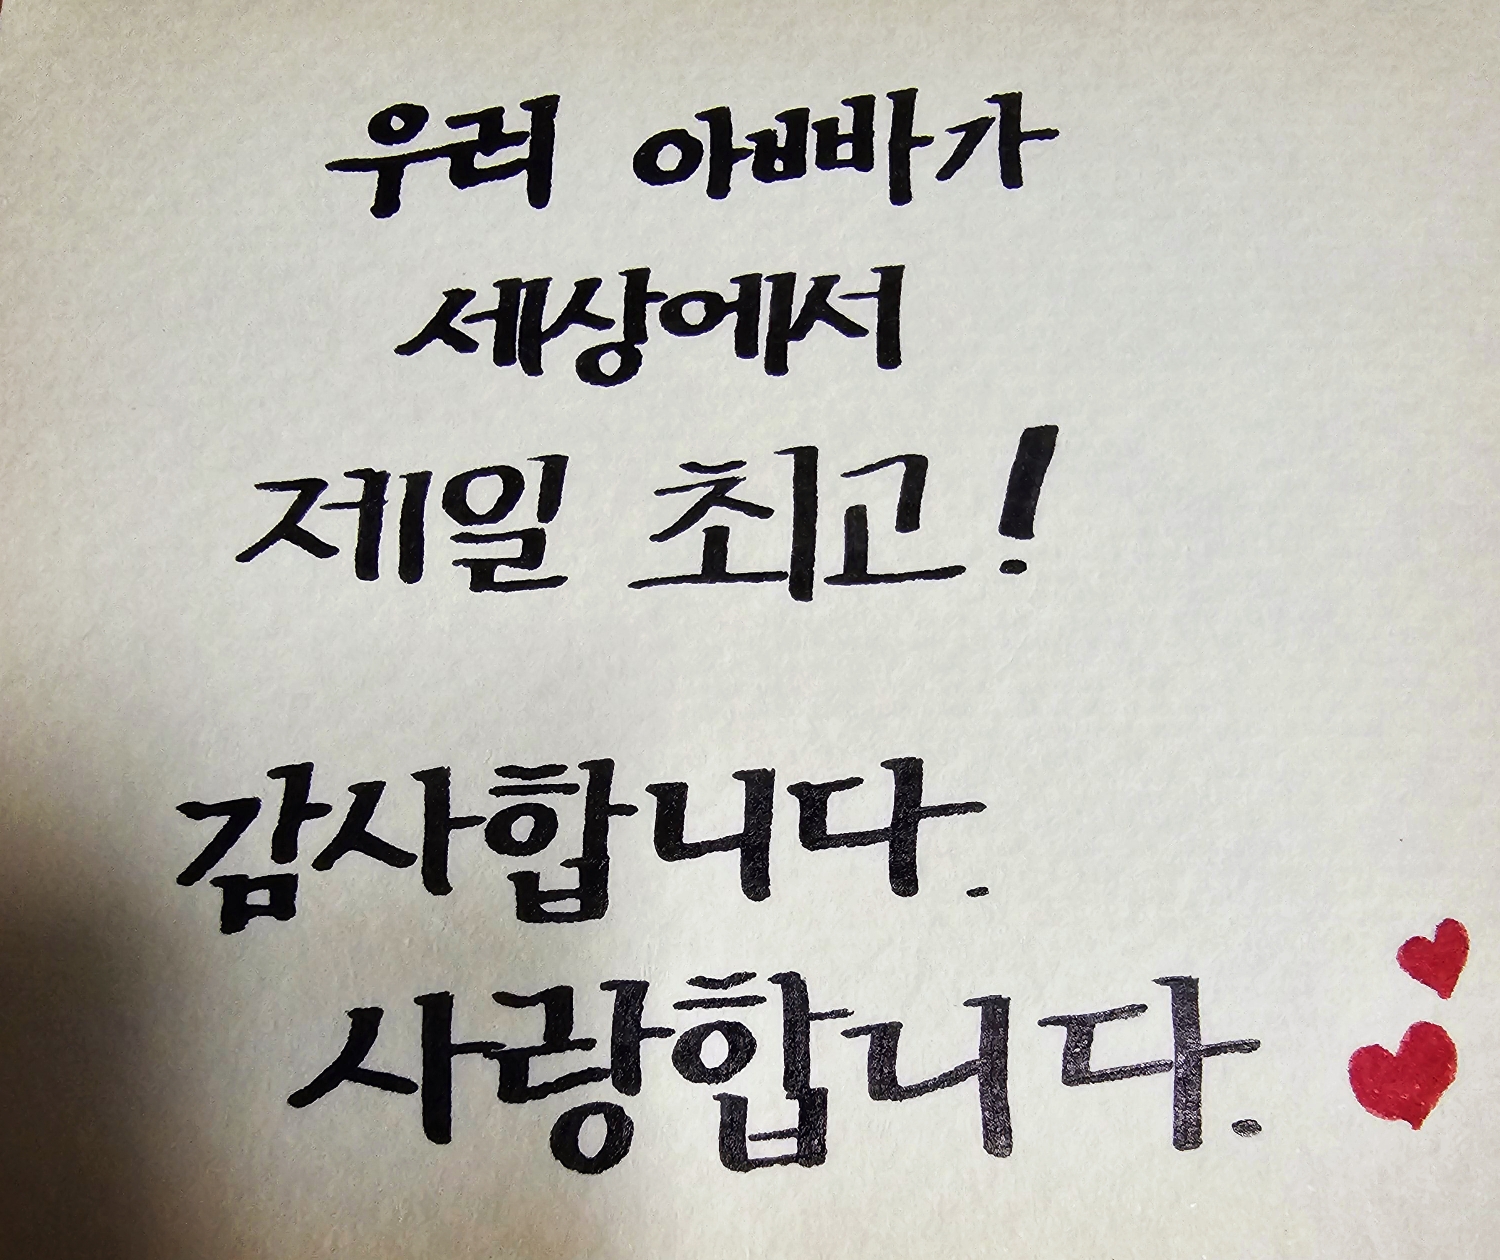 우리 아빠가
세상에서
제일 최고!
감사합니다.
사랑합니다.